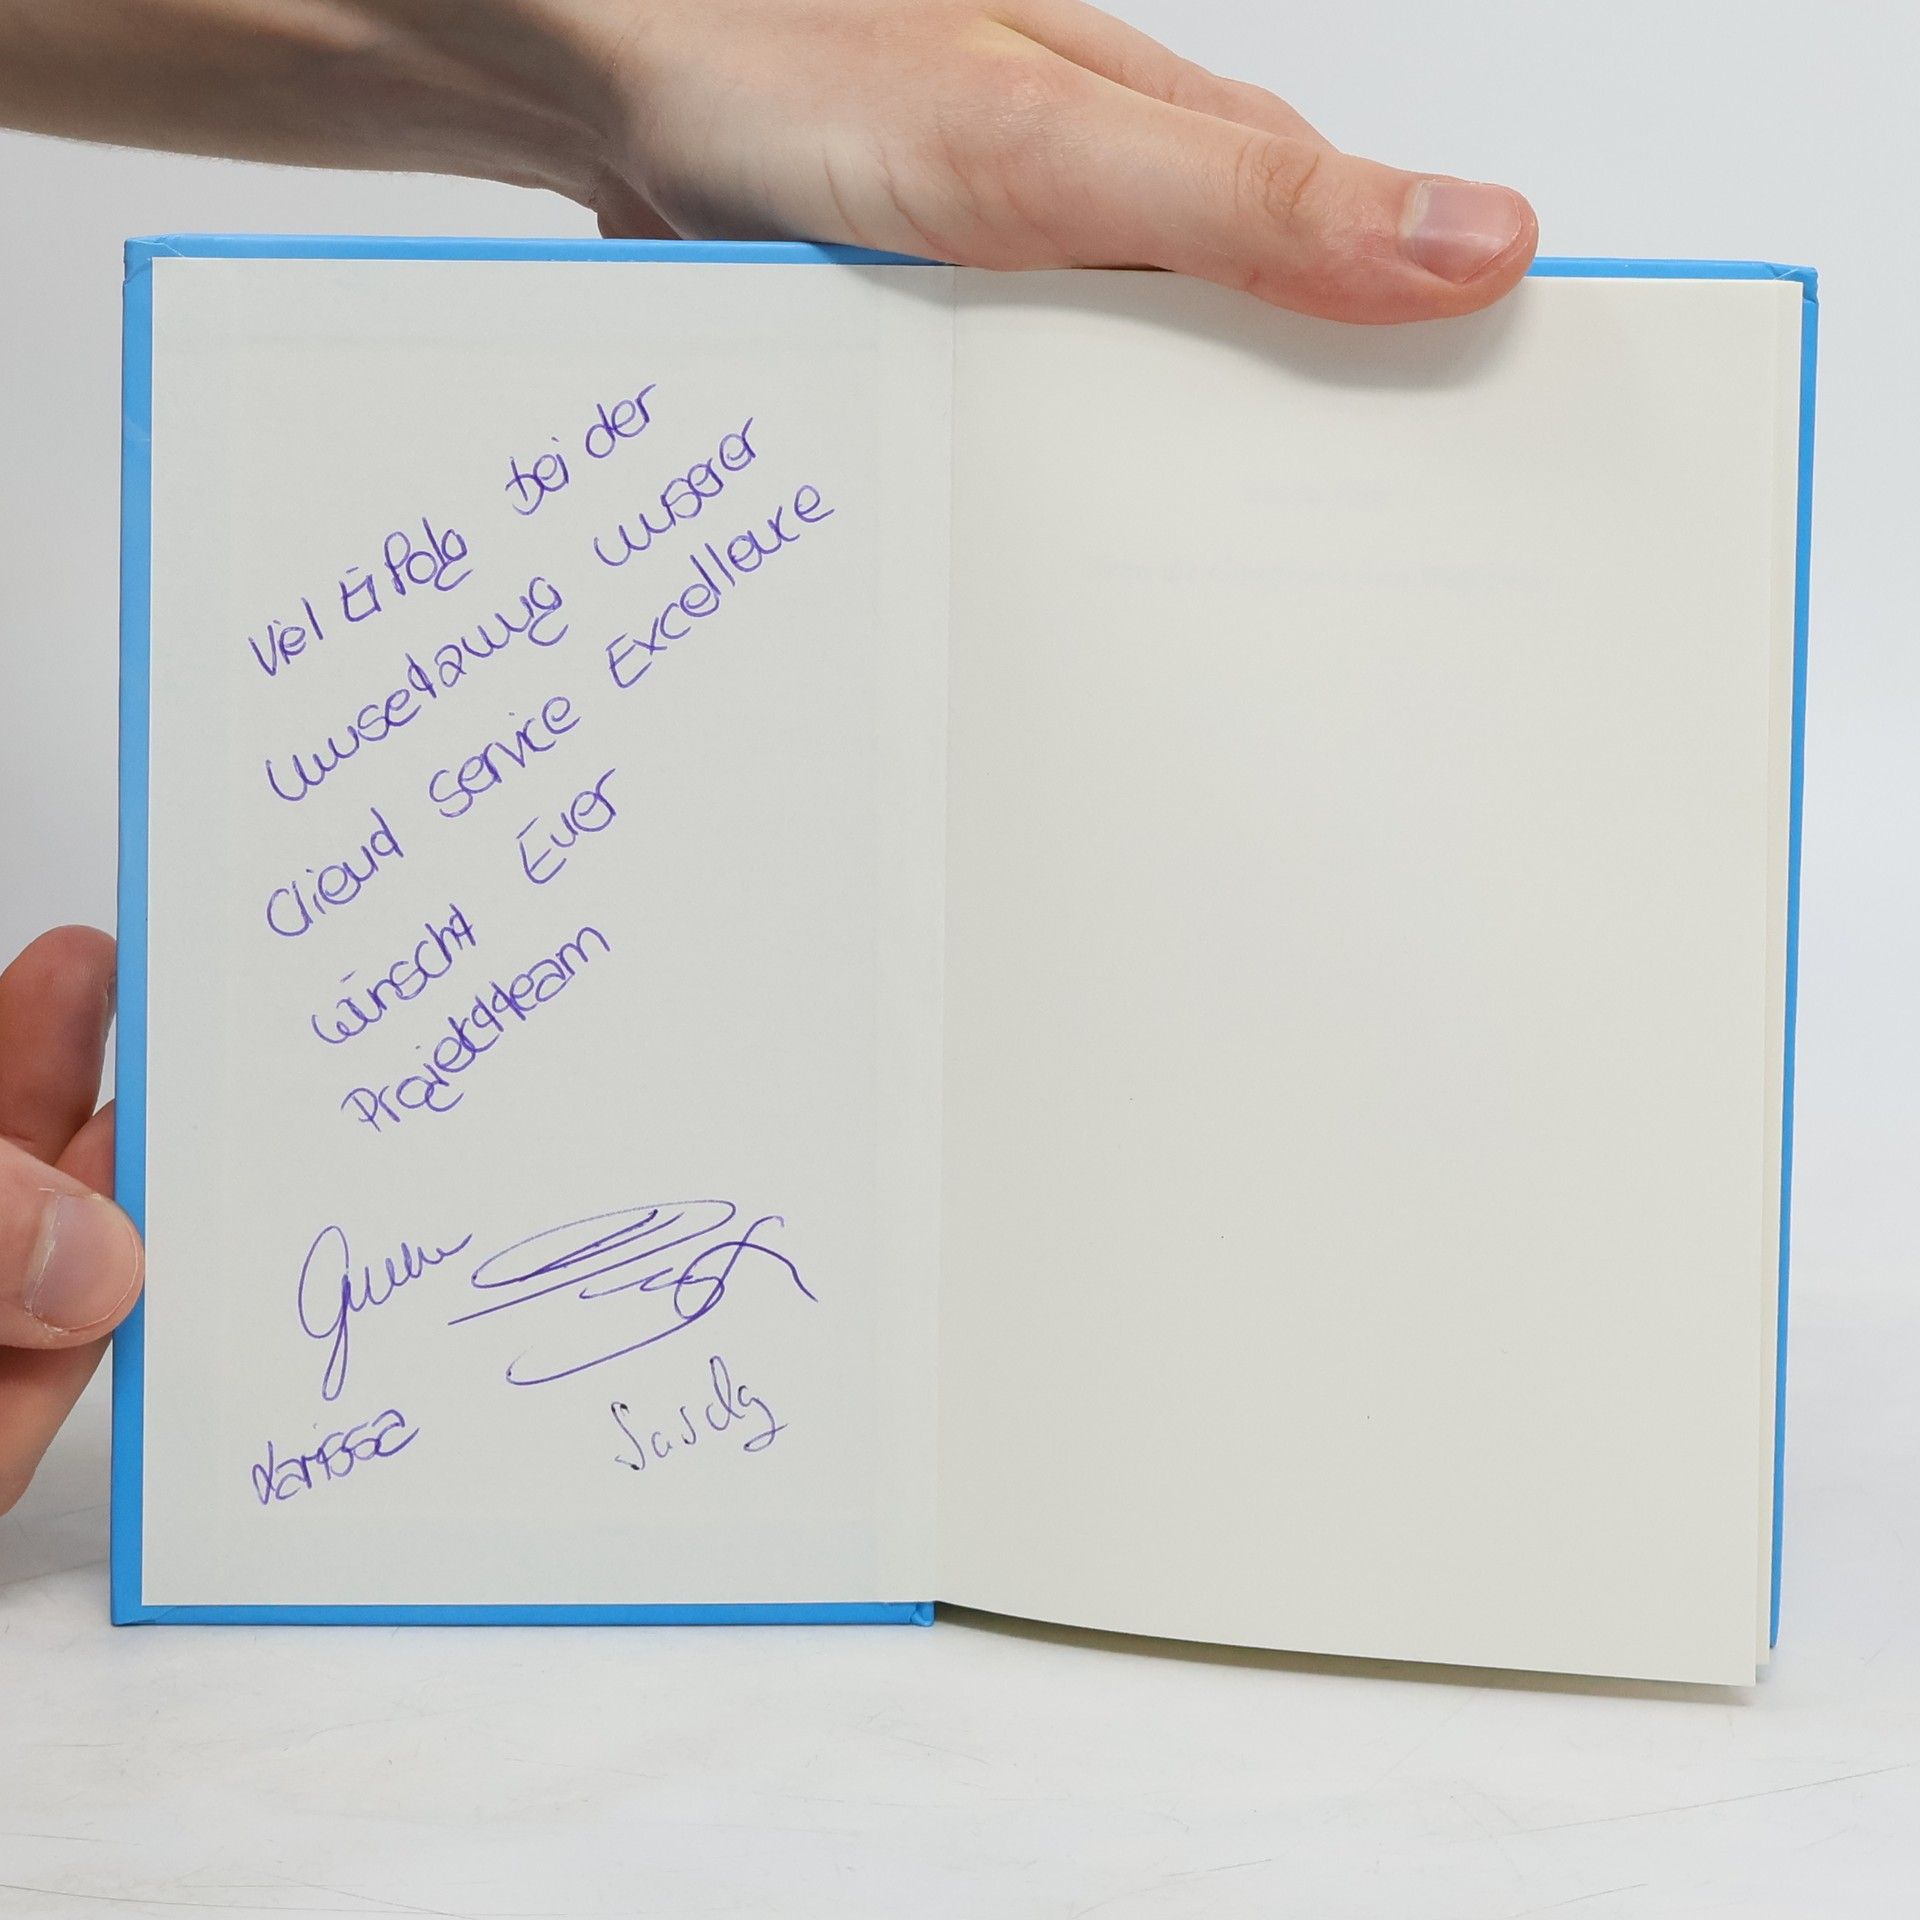 Viel Erfolg bei der
Umsetzung unserer
Client Service Excellence
wünscht Euer
Projektteam
Larissa